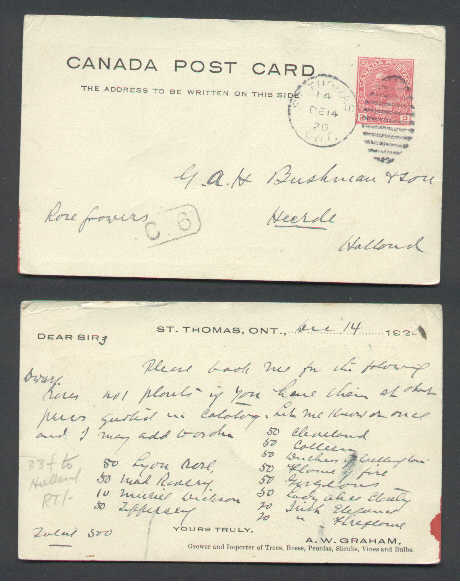 CANADA POST CARD
THE ADDRESS TO BE WRITTEN ON THIS SIDE
ST. THOMAS
14
DE 14
20
ONT.
CANADA POSTAGE
G. A. H. Bushman & Son
Rose Growers
Heerde
C 6
Holland
ST. THOMAS, ONT., Dec 14 192
DEAR SIRs
Please book me for the following
Dwarf
Roses not plants if you have them at
prices quoted in catalog. Let me know at once
and I may add to order
50 Cleveland
50 Colleen
50 Lyon Rose
50
50 Mad Ravary
50 Flame of fire
10 Muriel Dickson
50 Gorgeous
50
50 Lady Alice Stanley
20 Irish Elegance
20 " Fireflame
33f to
Holland
RT/-
Total 500
YOURS TRULY,
A. W. GRAHAM,
Grower and Importer of Trees, Roses, Peonies, Shrubs, Vines and Bulbs.